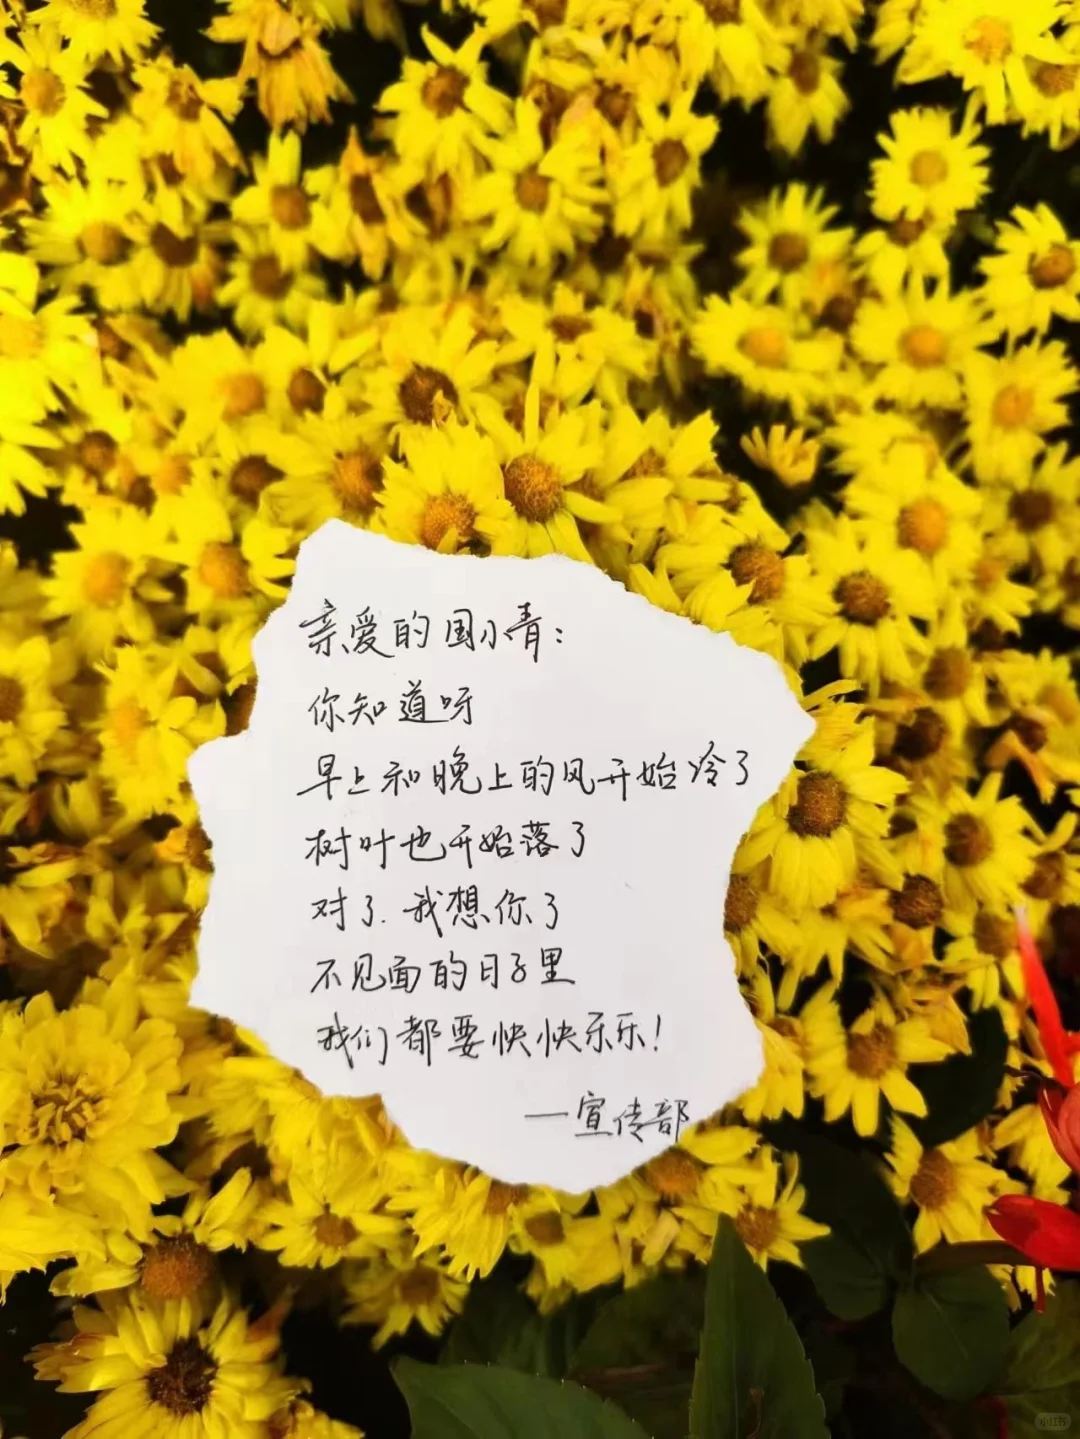 亲爱的国小青：
你知道呀
早上和晚上的风开始冷了
树叶也开始落了
对了.我想你了
不见面的日子里
我们都要快快乐乐！
—宣传部
小红书